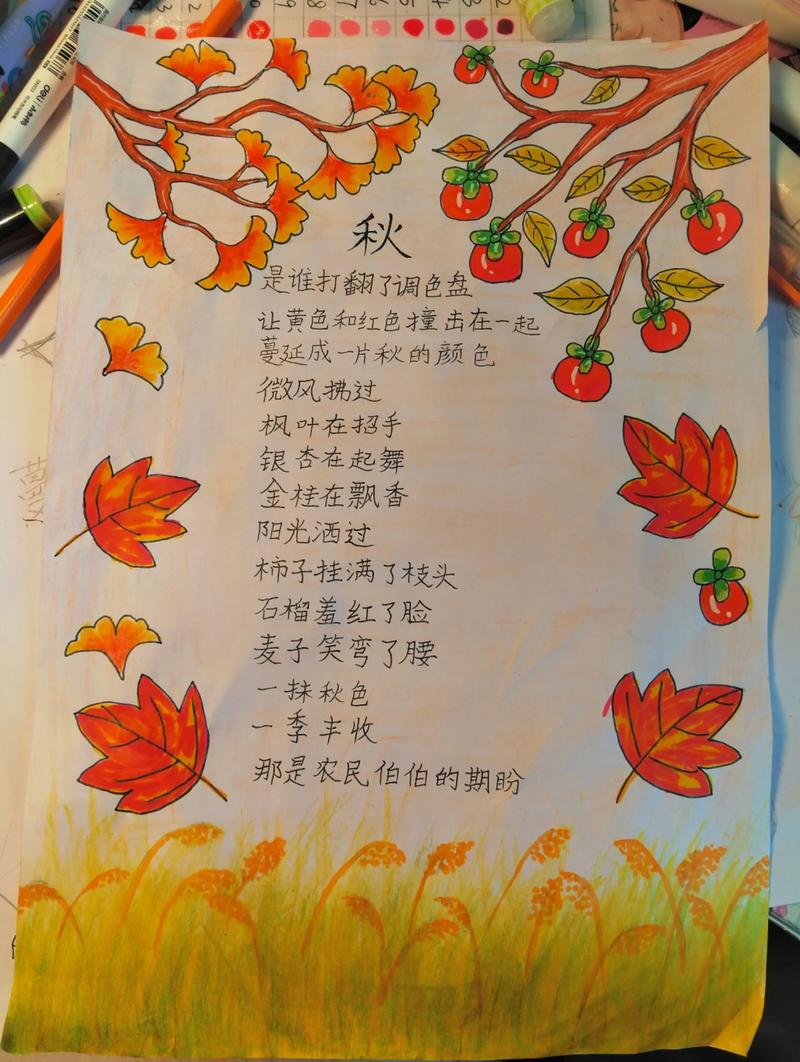 秋
是谁打翻了调色盘
让黄色和红色撞击在一起
蔓延成一片秋的颜色
微风拂过
枫叶在招手
银杏在起舞
金桂在飘香
阳光洒过
柿子挂满了枝头
石榴羞红了脸
麦子笑弯了腰
一抹秋色
一季丰收
那是农民伯伯的期盼